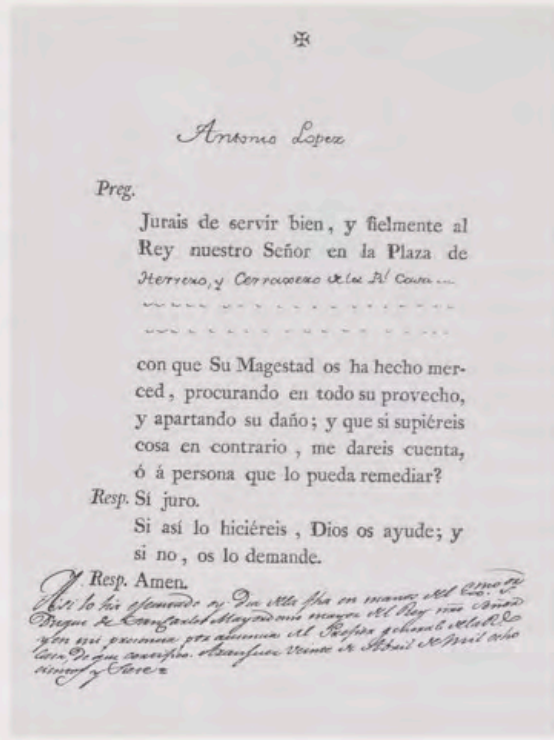 Antonio Lopez
Preg.
Jurais de servir bien, y fielmente al
Rey nuestro Señor en la Plaza de
Herrero, y Cerraxero de la Rl Casa
con que Su Magestad os ha hecho mer-
ced, procurando en todo su provecho,
y apartando su daño; y que si supiéreis
cosa en contrario, me dareis cuenta,
ó á persona que lo pueda remediar?
Resp. Sí juro.
Si así lo hiciéreis, Dios os ayude; y
si no, os lo demande.
Resp. Amen.
Asi lo ha efectuado oy Dia de la fha en manos del Exmo Sr
Duque de San Carlos Mayordomo mayor del Rey nro Señor
y en mi presencia por ausencia del general de la Rl
Casa, de que certifico. Aranjuez veinte de Abril de mil ocho
cientos y